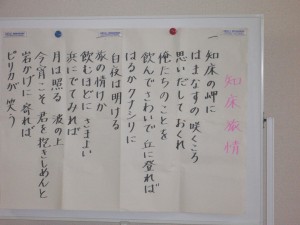 知床旅情
一 知床の岬に
はまなすの咲くころ
思いだしておくれ
俺たちのことを
飲んでさわいで 丘に登れば
はるかクナシリに
白夜は明ける
旅の情けか
飲むほどに さまよい
浜にでてみれば
月は照る 波の上
今宵こそ君を抱きしめんと
岩かげに寄れば
ピリカが笑う